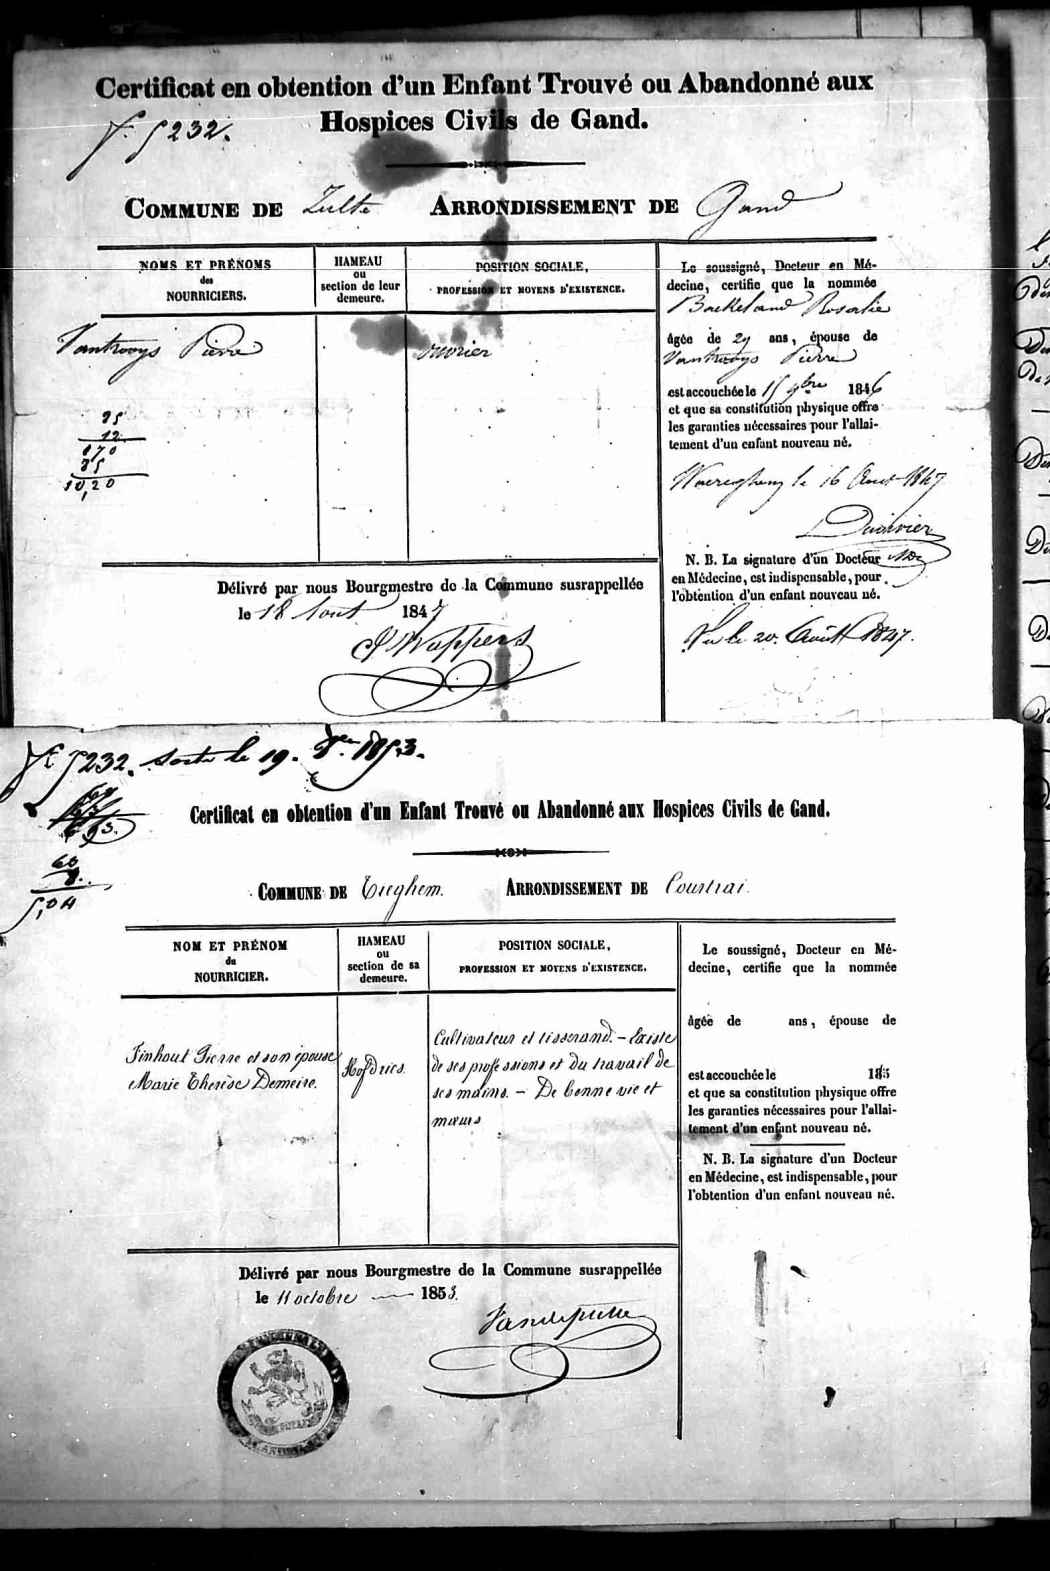 Certificat en obtention d'un Enfant Trouvé ou Abandonné aux
Hospices Civils de Gand.
5232.
COMMUNE DE Zulte ARRONDISSEMENT DE Gand
NOMS ET PRÉNOMS
des
NOURRICIERS.
HAMEAU
ou
section de leur
demeure.
POSITION SOCIALE,
PROFESSION ET MOYENS D'EXISTENCE.
Pierre
ouvrier
85
12
170
85
10,20
Le soussigné, Docteur en Mé-
decine, certifie que la nommée
Baekeland Rosalie
âgée de 29 ans, épouse de
Pierre
est accouchée le 15 9bre 1846
et que sa constitution physique offre
les garanties nécessaires pour l'allai-
tement d'un enfant nouveau né.
Waereghem le 16 Aout 1847
N. B. La signature d'un Docteur
en Médecine, est indispensable, pour
l'obtention d'un enfant nouveau né.
Vu le 20 Août 1847.
Délivré par nous Bourgmestre de la Commune susrappellée
le 18 Aout 1847
Wappers
5232. sortie le 19. 8re 1853.
60
5,04
Certificat en obtention d'un Enfant Trouvé ou Abandonné aux Hospices Civils de Gand.
COMMUNE DE Tieghem. ARRONDISSEMENT DE Courtrai.
NOM ET PRÉNOM
du
NOURRICIER.
HAMEAU
ou
section de sa
demeure.
POSITION SOCIALE,
PROFESSION ET MOYENS D'EXISTENCE.
Finhout Pierre et son épouse
Marie Therèse Demeire.
Cultivateur et tisserand. – Existe
de ses professions et du travail de
ses mains. – De bonne vie et
mœurs
Le soussigné, Docteur en Mé-
decine, certifie que la nommée
âgée de ans, épouse de
est accouchée le 185
et que sa constitution physique offre
les garanties nécessaires pour l'allai-
tement d'un enfant nouveau né.
N. B. La signature d'un Docteur
en Médecine, est indispensable, pour
l'obtention d'un enfant nouveau né.
Délivré par nous Bourgmestre de la Commune susrappellée
le 11 octobre 1853.
Vandeputte